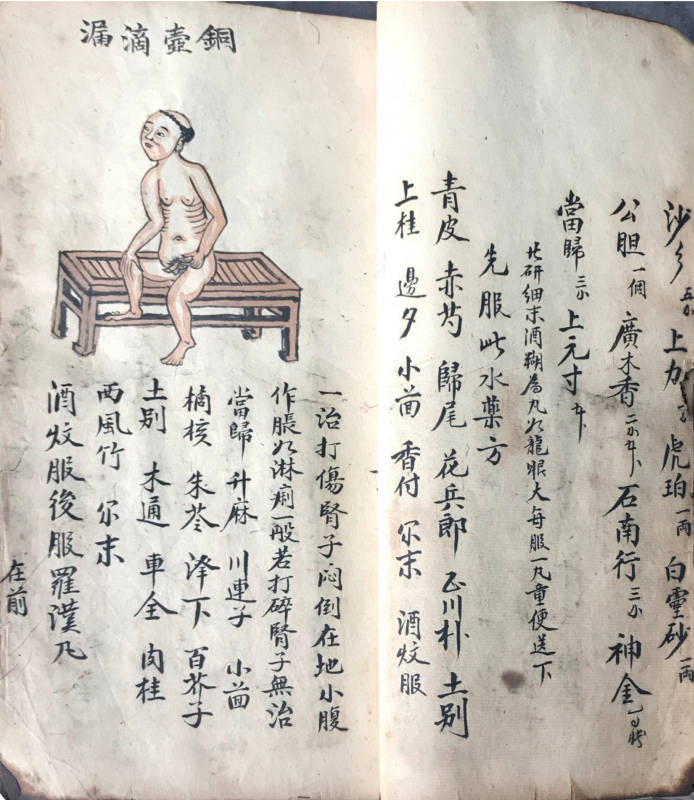 沙 上力 虎珀 一両 白靈砂 一両
公胆 一個 廣木香 石南行 神金
當歸 上元寸
此研細末酒糊為丸如龍眼大每服一丸童便送下
先服此水藥方
青皮 赤芍 歸尾 花兵郎 正川朴 土别
上桂 邊夕 小茴 香付 尔末 酒炆服
銅壺滴漏
一治打傷腎子悶倒在地小腹
作脹如淋痢一般若打碎腎子無治
當歸 升麻 川連子 小茴
橘核 朱苓 澤下 百芥子
土别 木通 車全 肉桂
西風竹 尔末
酒炆服後服羅漢丸
在前